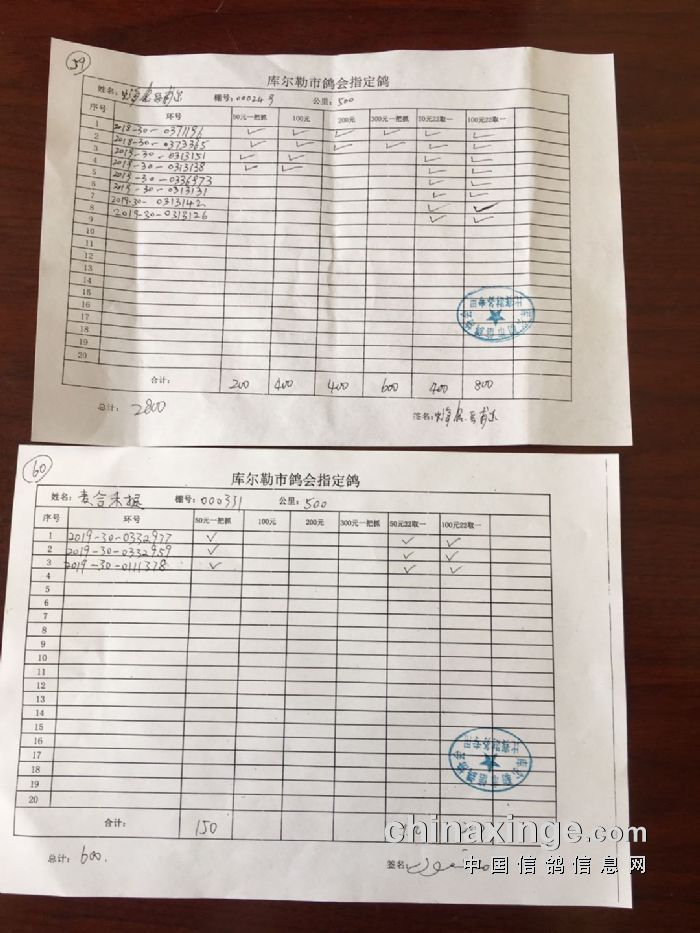 59
库尔勒市鸽会指定鸽
姓名: 棚号:000248 公里:500
序号 环号 50元一把抓 100元 200元 300元一把抓 50元22取一 100元22取一
1 2018-30-0371196 ✓ ✓ ✓ ✓ ✓ ✓
2 2018-30-0373365 ✓ ✓ ✓ ✓ ✓ ✓
3 2019-30-0313151 ✓ ✓ ✓ ✓
4 2019-30-0313138 ✓ ✓ ✓ ✓
5 2019-30-0336973 ✓ ✓
6 2019-30-0313131 ✓ ✓
7 2019-30-0313142 ✓ ✓
8 2019-30-0313126 ✓ ✓
9
10
11
12
13
14
15
16
17
18
19
20
合计: 200 400 400 600 400 800
总计: 2800 签名:
60
库尔勒市鸽会指定鸽
姓名: 麦合木提 棚号:000331 公里:500
序号 环号 50元一把抓 100元 200元 300元一把抓 50元22取一 100元22取一
1 2019-30-0332977 ✓ ✓ ✓
2 2019-30-0332959 ✓ ✓ ✓
3 2019-30-0111378 ✓ ✓ ✓
4
5
6
7
8
9
10
11
12
13
14
15
16
17
18
19
20
合计: 150
总计: 600. 签名:
chinaxinge.com
中国信鸽信息网